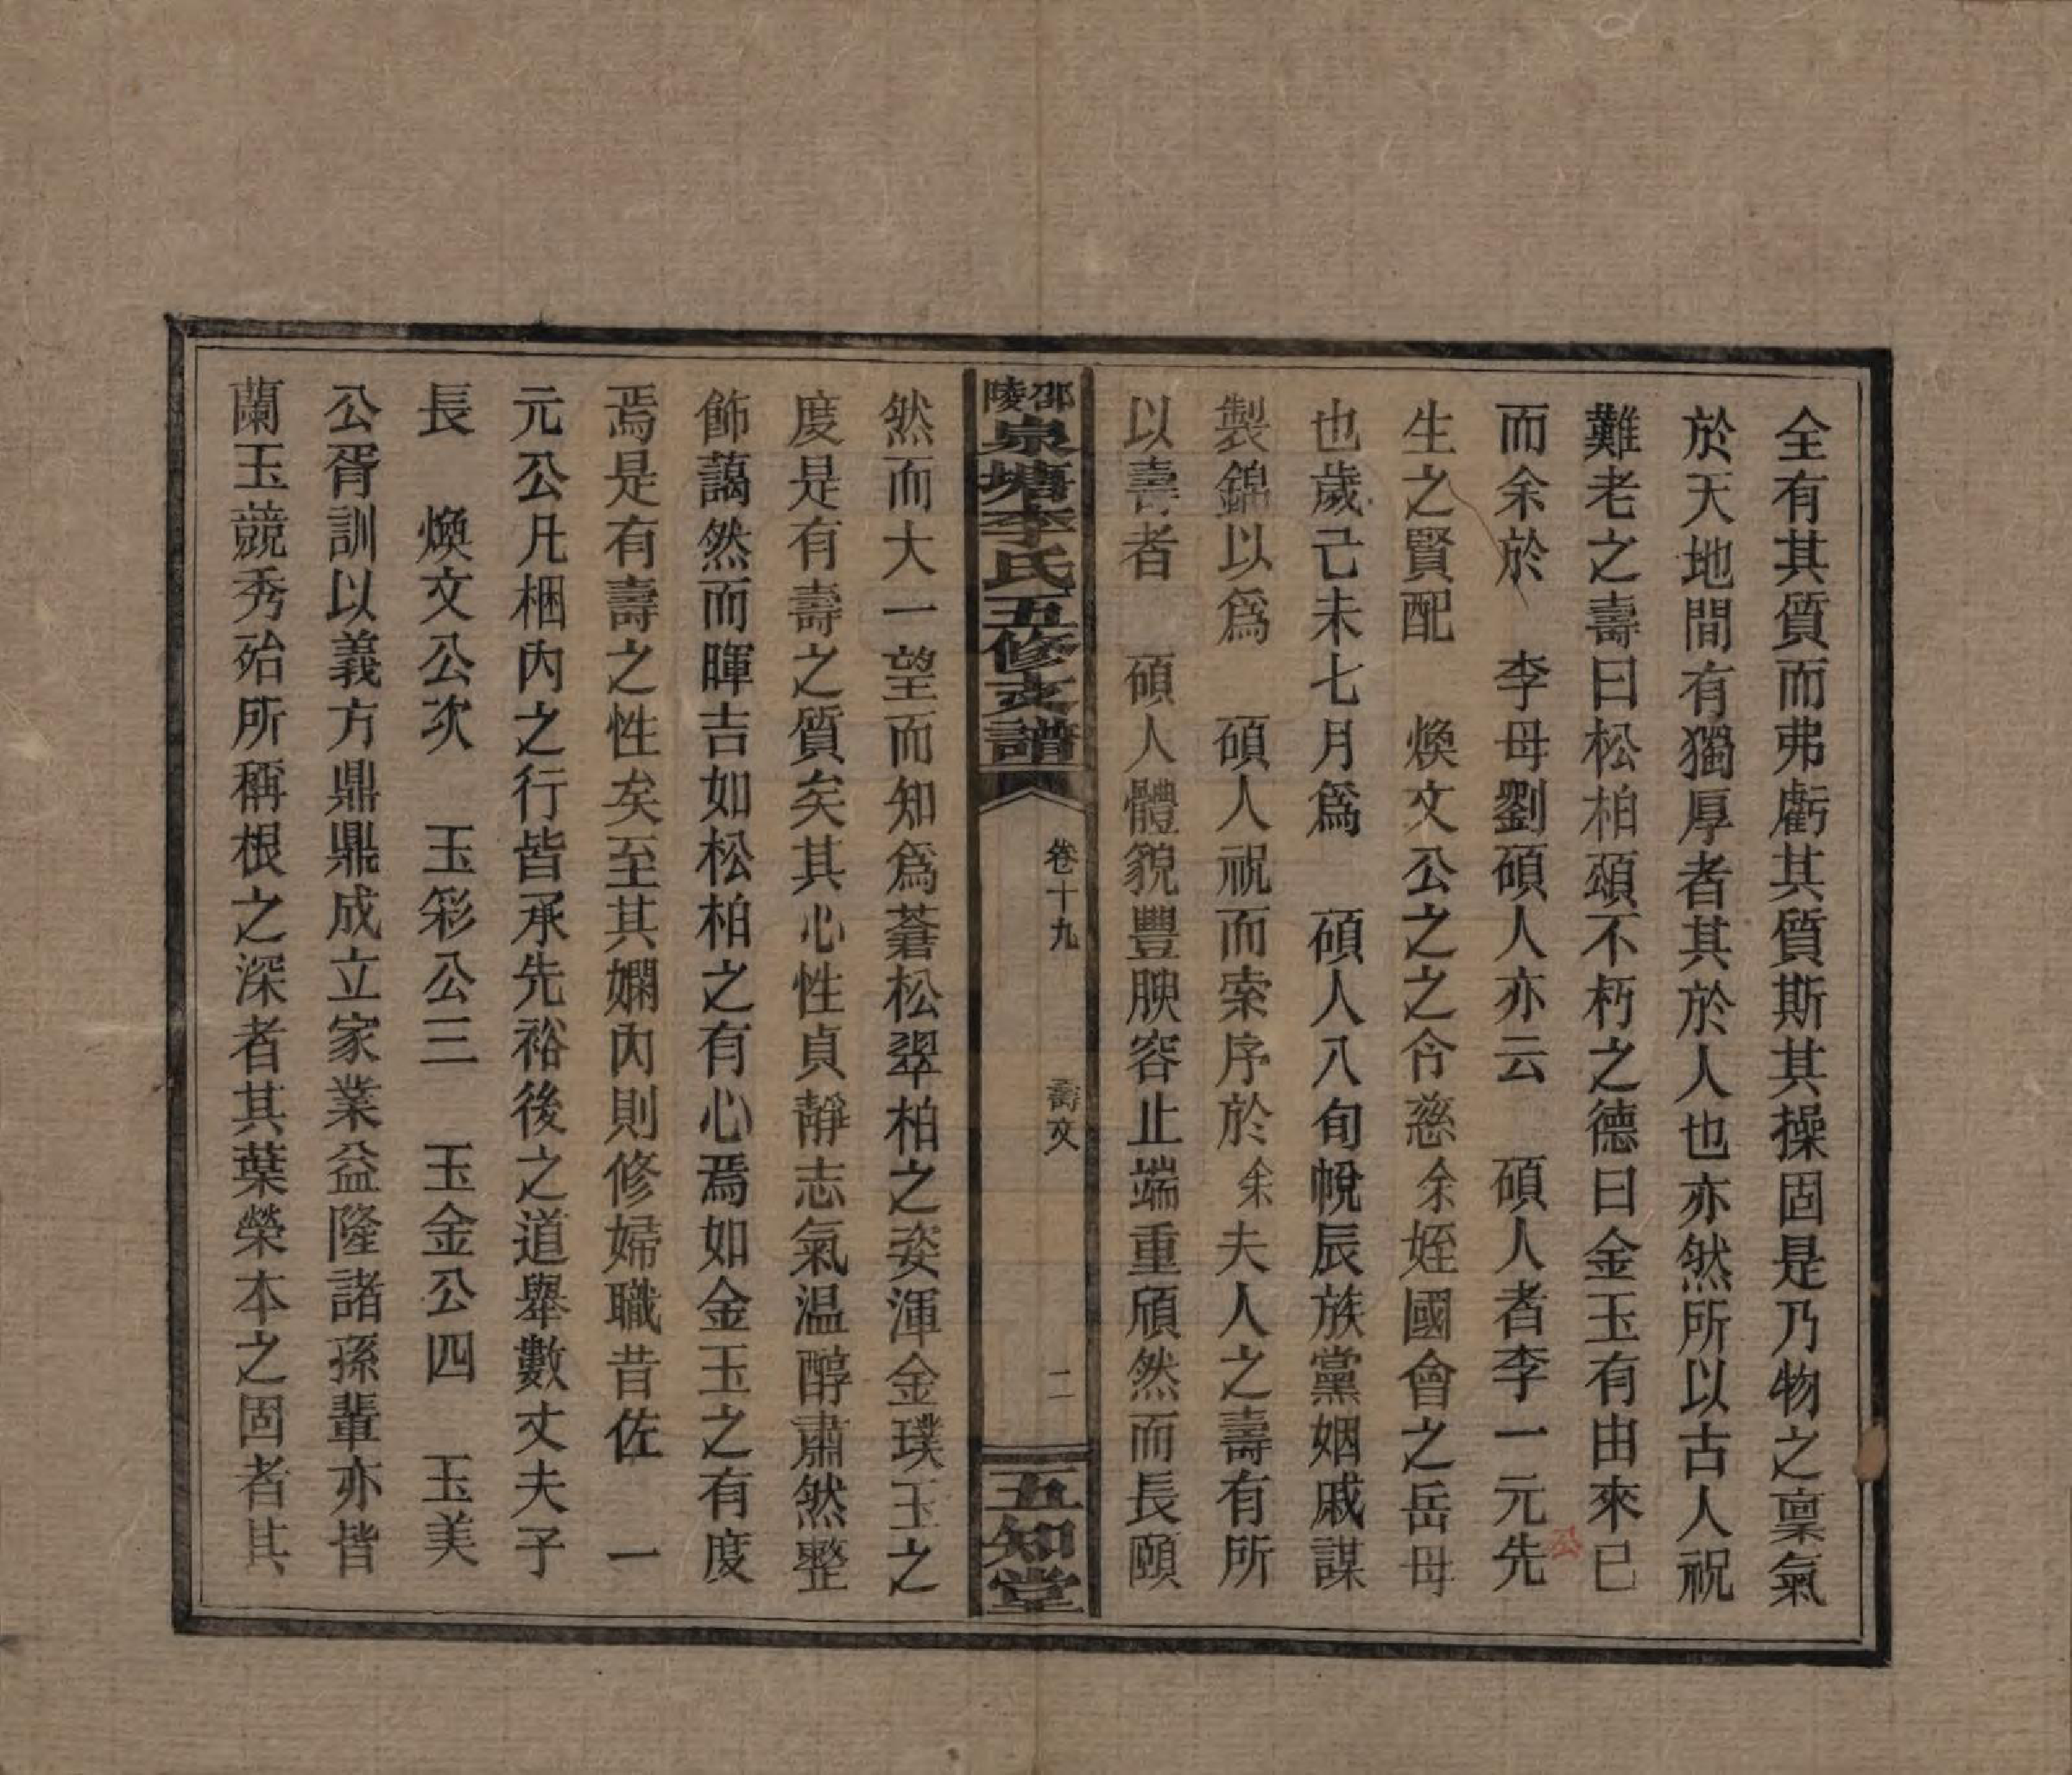 全有其質而弗虧其質斯其操固是乃物之稟氣
於天地間有獨厚者其於人也亦然所以古人祝
難老之壽曰松柏頌不朽之德曰金玉有由來已
而余於　李母劉碩人亦云　碩人者李一元先
公
生之賢配　煥文公之之令慈余姪國會之岳母
也歲己未七月爲　碩人八旬帨辰族黨姻戚謀
製錦以爲　碩人祝而索序於余夫人之壽有所
以壽者　碩人體貌豐腴容止端重頎然而長頤
邵陵泉塘李氏五修支譜
卷十九
壽文
二
五知堂
然而大一望而知爲蒼松翠柏之姿渾金璞玉之
度是有壽之質矣其心性貞靜志氣温醇肅然整
飾藹然而暉吉如松柏之有心焉如金玉之有度
焉是有壽之性矣至其嫻內則修婦職昔佐　一
元公凡梱內之行皆承先裕後之道舉數丈夫子
長　煥文公次　玉彩公三　玉金公四　玉美
公胥訓以義方鼎鼎成立家業益隆諸孫輩亦皆
蘭玉競秀殆所稱根之深者其葉榮本之固者其